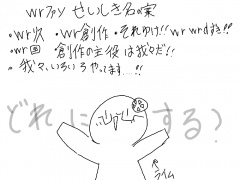 wrファン せいしき名の案
・wr次 ・wr創作・それゆけ!! wrwrdずき!!
・wr国 創作の主役は我々だ!!
・我々、いろいろやってます…!!
どれに する?
ライム